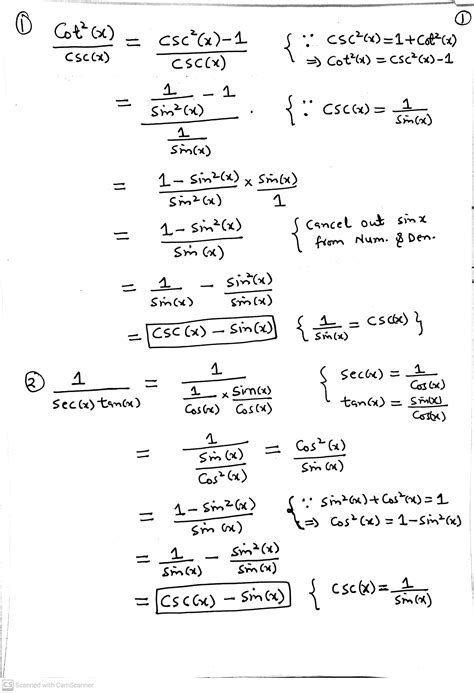 ① Cot²(x)/csc(x) = csc²(x)-1/csc(x) { ∵ csc²(x)=1+Cot²(x) ①
⇒ Cot²(x)=csc²(x)-1
= (1/Sin²(x) - 1)/(1/Sin(x)) . { ∵ csc(x) = 1/Sin(x)
= 1-Sin²(x)/Sin²(x) × Sin(x)/1
= 1-Sin²(x)/Sin(x) { Cancel out sinx
from Num. & Den.
= 1/Sin(x) - Sin²(x)/Sin(x)
= CSC(x) - Sin(x) { 1/Sin(x) = CSC(x) }
② 1/Sec(x) tan(x) = 1/(1/Cos(x) × Sin(x)/Cos(x)) { Sec(x) = 1/Cos(x)
tan(x) = Sin(x)/Cos(x)
= 1/(Sin(x)/Cos²(x)) = Cos²(x)/Sin(x)
= 1-Sin²(x)/Sin(x) { ∵ Sin²(x)+Cos²(x)=1
⇒ Cos²(x) = 1-Sin²(x)
= 1/Sin(x) - Sin²(x)/Sin(x)
= CSC(x) - Sin(x) { CSC(x) = 1/Sin(x)
CS Scanned with CamScanner